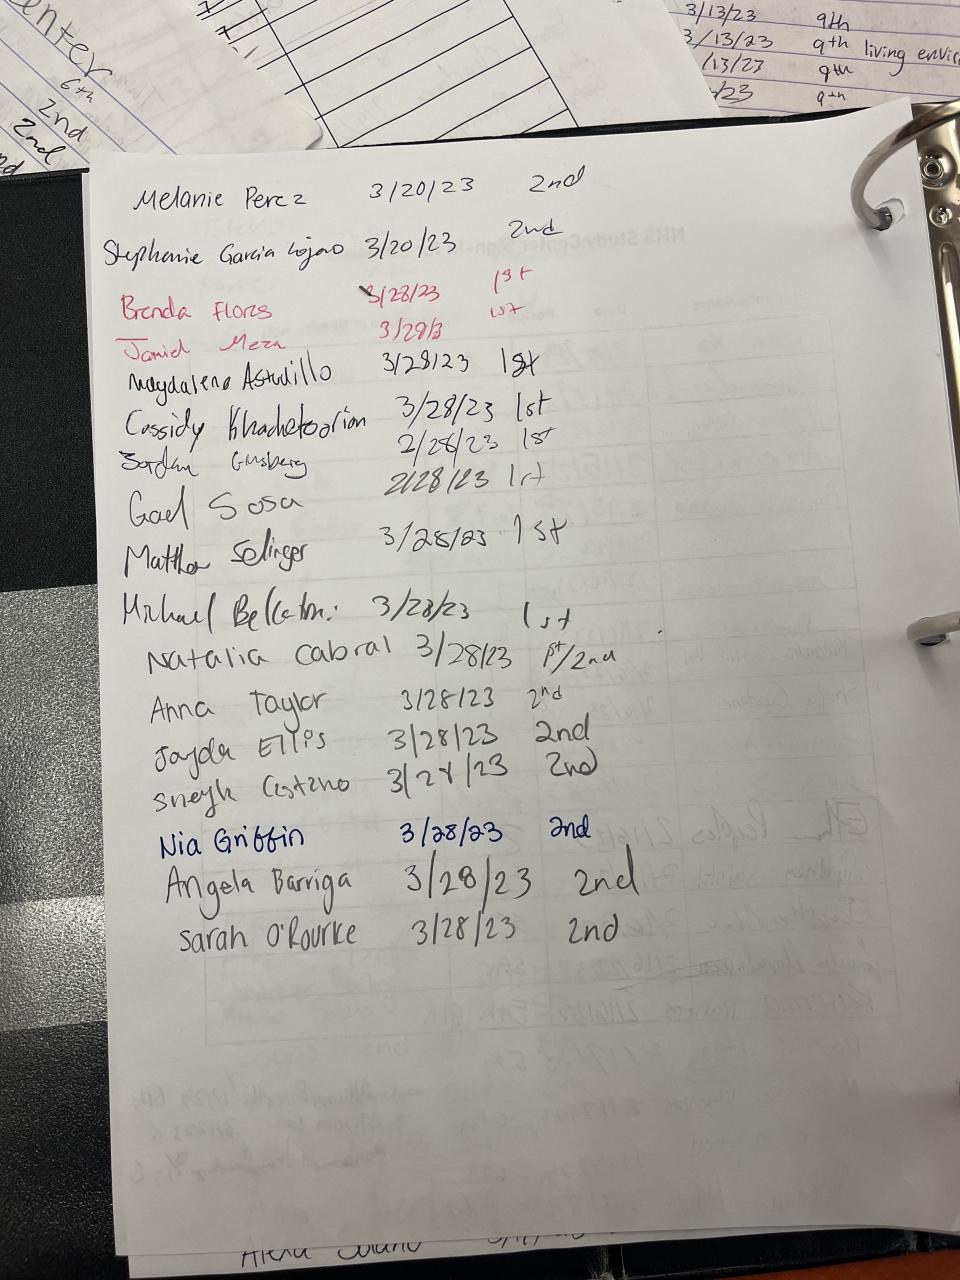 enter
6th
2nd
2nd
nd
3/13/23 9th
3/13/23 9th living envir
/13/23 9th
/23 9th
Melanie Perez 3/20/23 2nd
Stephanie Garcia Lojano 3/20/23 2nd
Brenda Flores 3/28/23 1st
Jamiel Meza 3/29/3 1st
Magdalena Astudillo 3/28/23 1st
Cassidy Khachatoorian 3/28/23 1st
Jordan Ginsberg 2/28/23 1st
Gael Sosa 2/28/23 1st
Matthew Selinger 3/28/23 1st
Michael 3/28/23 1st
Natalia Cabral 3/28/23 1st/2nd
Anna Taylor 3/28/23 2nd
Jayda Ellis 3/28/23 2nd
3/28/23 2nd
Nia Griffin 3/28/23 2nd
Angela Barriga 3/28/23 2nd
Sarah O'Rourke 3/28/23 2nd